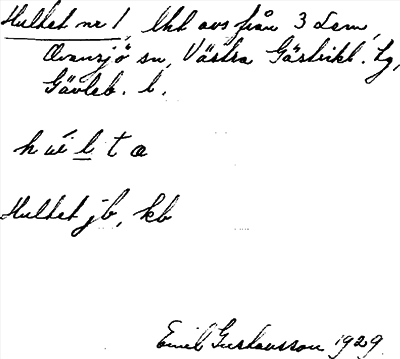 Hultet nr 1, lht avs från 3 Lem,
Ovansjö sn, Västra Gästrikl. tg,
Gävleb. l.
húlta
Hultet jb, kb
Emil Gustavsson 1929